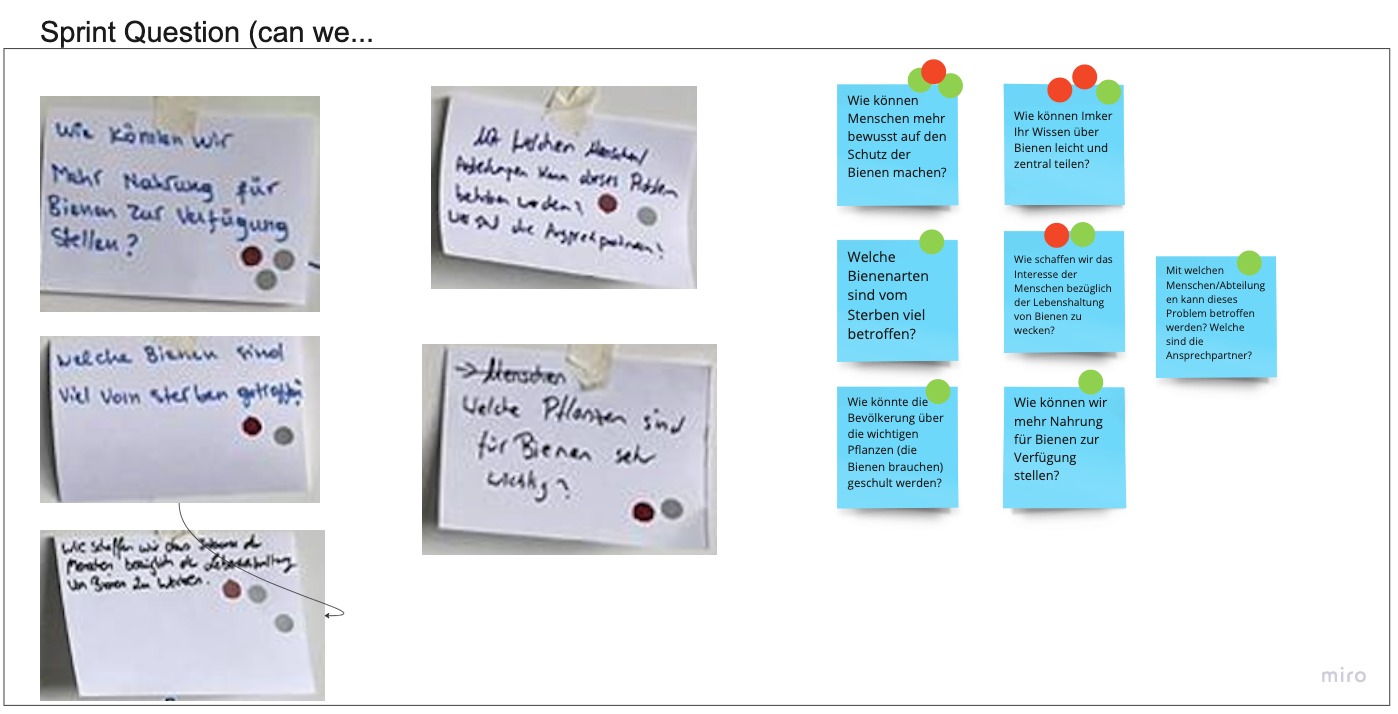 Sprint Question (can we...
Wie können wir
Mehr Nahrung für
Bienen zur Verfügung
stellen?
welche Bienen sind
viel vom sterben getroffen?
Wie schaffen wir das Interesse der
Menschen bezüglich der Lebenshaltung
von Bienen zu wecken.
Mit welchen Menschen/
Abteilungen kann dieses Problem
betroffen werden?
Wer sind die Ansprechpartner?
→ Menschen
Welche Pflanzen sind
für Bienen sehr
wichtig?
Wie können
Menschen mehr
bewusst auf den
Schutz der
Bienen machen?
Wie können Imker
Ihr Wissen über
Bienen leicht und
zentral teilen?
Welche
Bienenarten
sind vom
Sterben viel
betroffen?
Wie schaffen wir das
Interesse der
Menschen bezüglich
der Lebenshaltung
von Bienen zu
wecken?
Mit welchen
Menschen/Abteilung
en kann dieses
Problem betroffen
werden? Welche
sind die
Ansprechpartner?
Wie könnte die
Bevölkerung über
die wichtigen
Pflanzen (die
Bienen brauchen)
geschult werden?
Wie können wir
mehr Nahrung
für Bienen zur
Verfügung
stellen?
miro